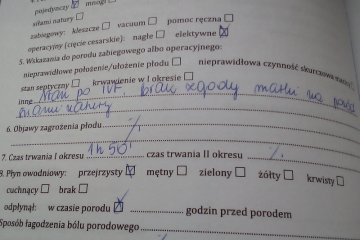 pojedynczy ☒ mnogi
siłami natury ☐
zabiegowy: kleszcze ☐ vacuum ☐ pomoc ręczna ☐
operacyjny (cięcie cesarskie): nagłe ☐ elektywne ☒
5. Wskazania do porodu zabiegowego albo operacyjnego:
nieprawidłowe położenie/ułożenie płodu ☐ nieprawidłowa czynność skurczowa
stan septyczny ☐ krwawienie w I okresie ☐
inne Stan po IVF, brak zgody matki na poród
siłami natury
6. Objawy zagrożenia płodu
7. Czas trwania I okresu 1h 50' czas trwania II okresu
8. Płyn owodniowy: przejrzysty ☒ mętny ☐ zielony ☐ żółty ☐ krwisty ☐
cuchnący ☐ brak ☐
odpłynął: w czasie porodu ☒ godzin przed porodem
Sposób łagodzenia bólu porodowego